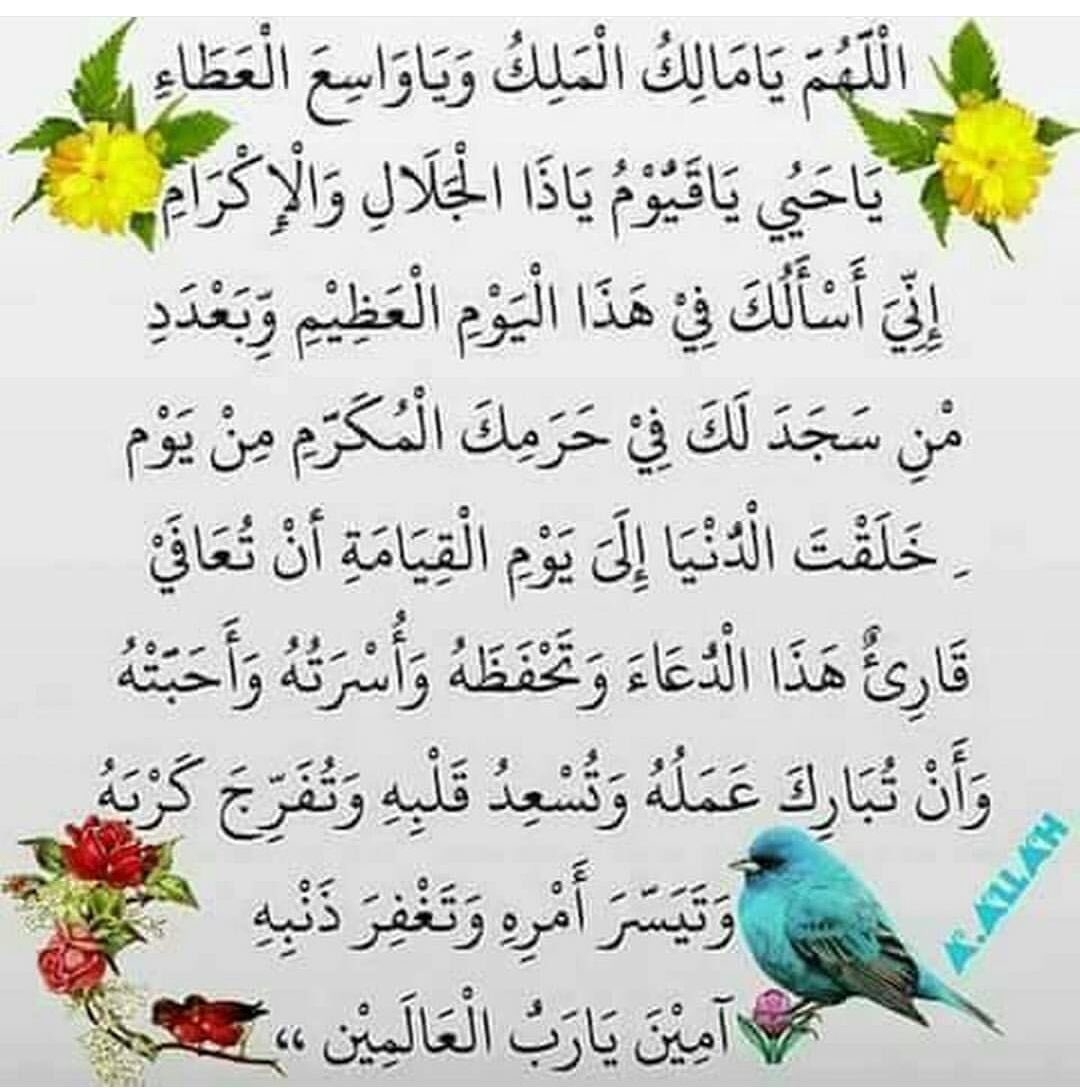 الْلَّهُمَّ يَامَالِكُ الْمَلِكُ وَيَاوَاسِعَ الْعَطَاءِ
يَاحَيُي يَاقَيُوْمُ يَاذَا الْجَلَالِ وَالْإِكْرَامِ
إِنِّيَ أَسْأَلُكَ فِيْ هَذَا الْيَوْمِ الْعَظِيْمِ وِّبَعْدَدِ
مْنِ سَجَدَ لَكَ فِيْ حَرَمِكَ الْمُكَرّمِ مِنْ يَوْم
ِ خَلَقْتَ الْدُنْيَا إِلَىَ يَوْمِ الْقِيَامَةِ أَنْ تُعَافَيْ
قَارِئٌ هَذَا الْدُعَاءَ وَتَحْفَظَهُ وَأُسْرَتُهُ وَأَحَبّتْهُ
وَأَنْ تُبَارِكَ عَمَلُهُ وَتُسْعِدُ قَلْبِهِ وَتُفَرِّجَ كَرْبَهُ
وَتَيَسّرَ أَمْرِهِ وَتَغْفِرَ ذَنْبِهِ
آمِيْنَ يَارَبُ الْعَالَمِيْن “
K.ALLAH